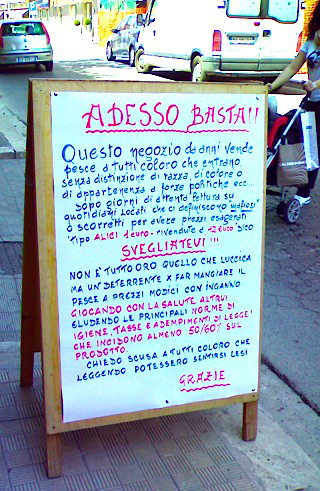 ADESSO BASTA!!
Questo negozio da anni vende
pesce a tutti coloro che entrano,
senza distinzione di razza, di colore o
di appartenenza a forze politiche ecc...
Dopo giorni di attenta lettura su
quotidiani locali che ci definiscono mafiosi
o scorretti per avere prezzi esagerati
Tipo ALICI 1 euro - rivendute a 12 euro dico
SVEGLIATEVI!!!
NON È TUTTO ORO QUELLO CHE LUCCICA
MA UN DETERRENTE X FAR MANGIARE IL
PESCE A PREZZI MODICI CON INGANNO
GIOCANDO CON LA SALUTE ALTRUI
ELUDENDO LE PRINCIPALI NORME DI
IGIENE, TASSE E ADEMPIMENTI DI LEGGE
CHE INCIDONO ALMENO 50/60% SUL
PRODOTTO.
CHIEDO SCUSA A TUTTI COLORO CHE
LEGGENDO POTESSERO SENTIRSI LESI
GRAZIE